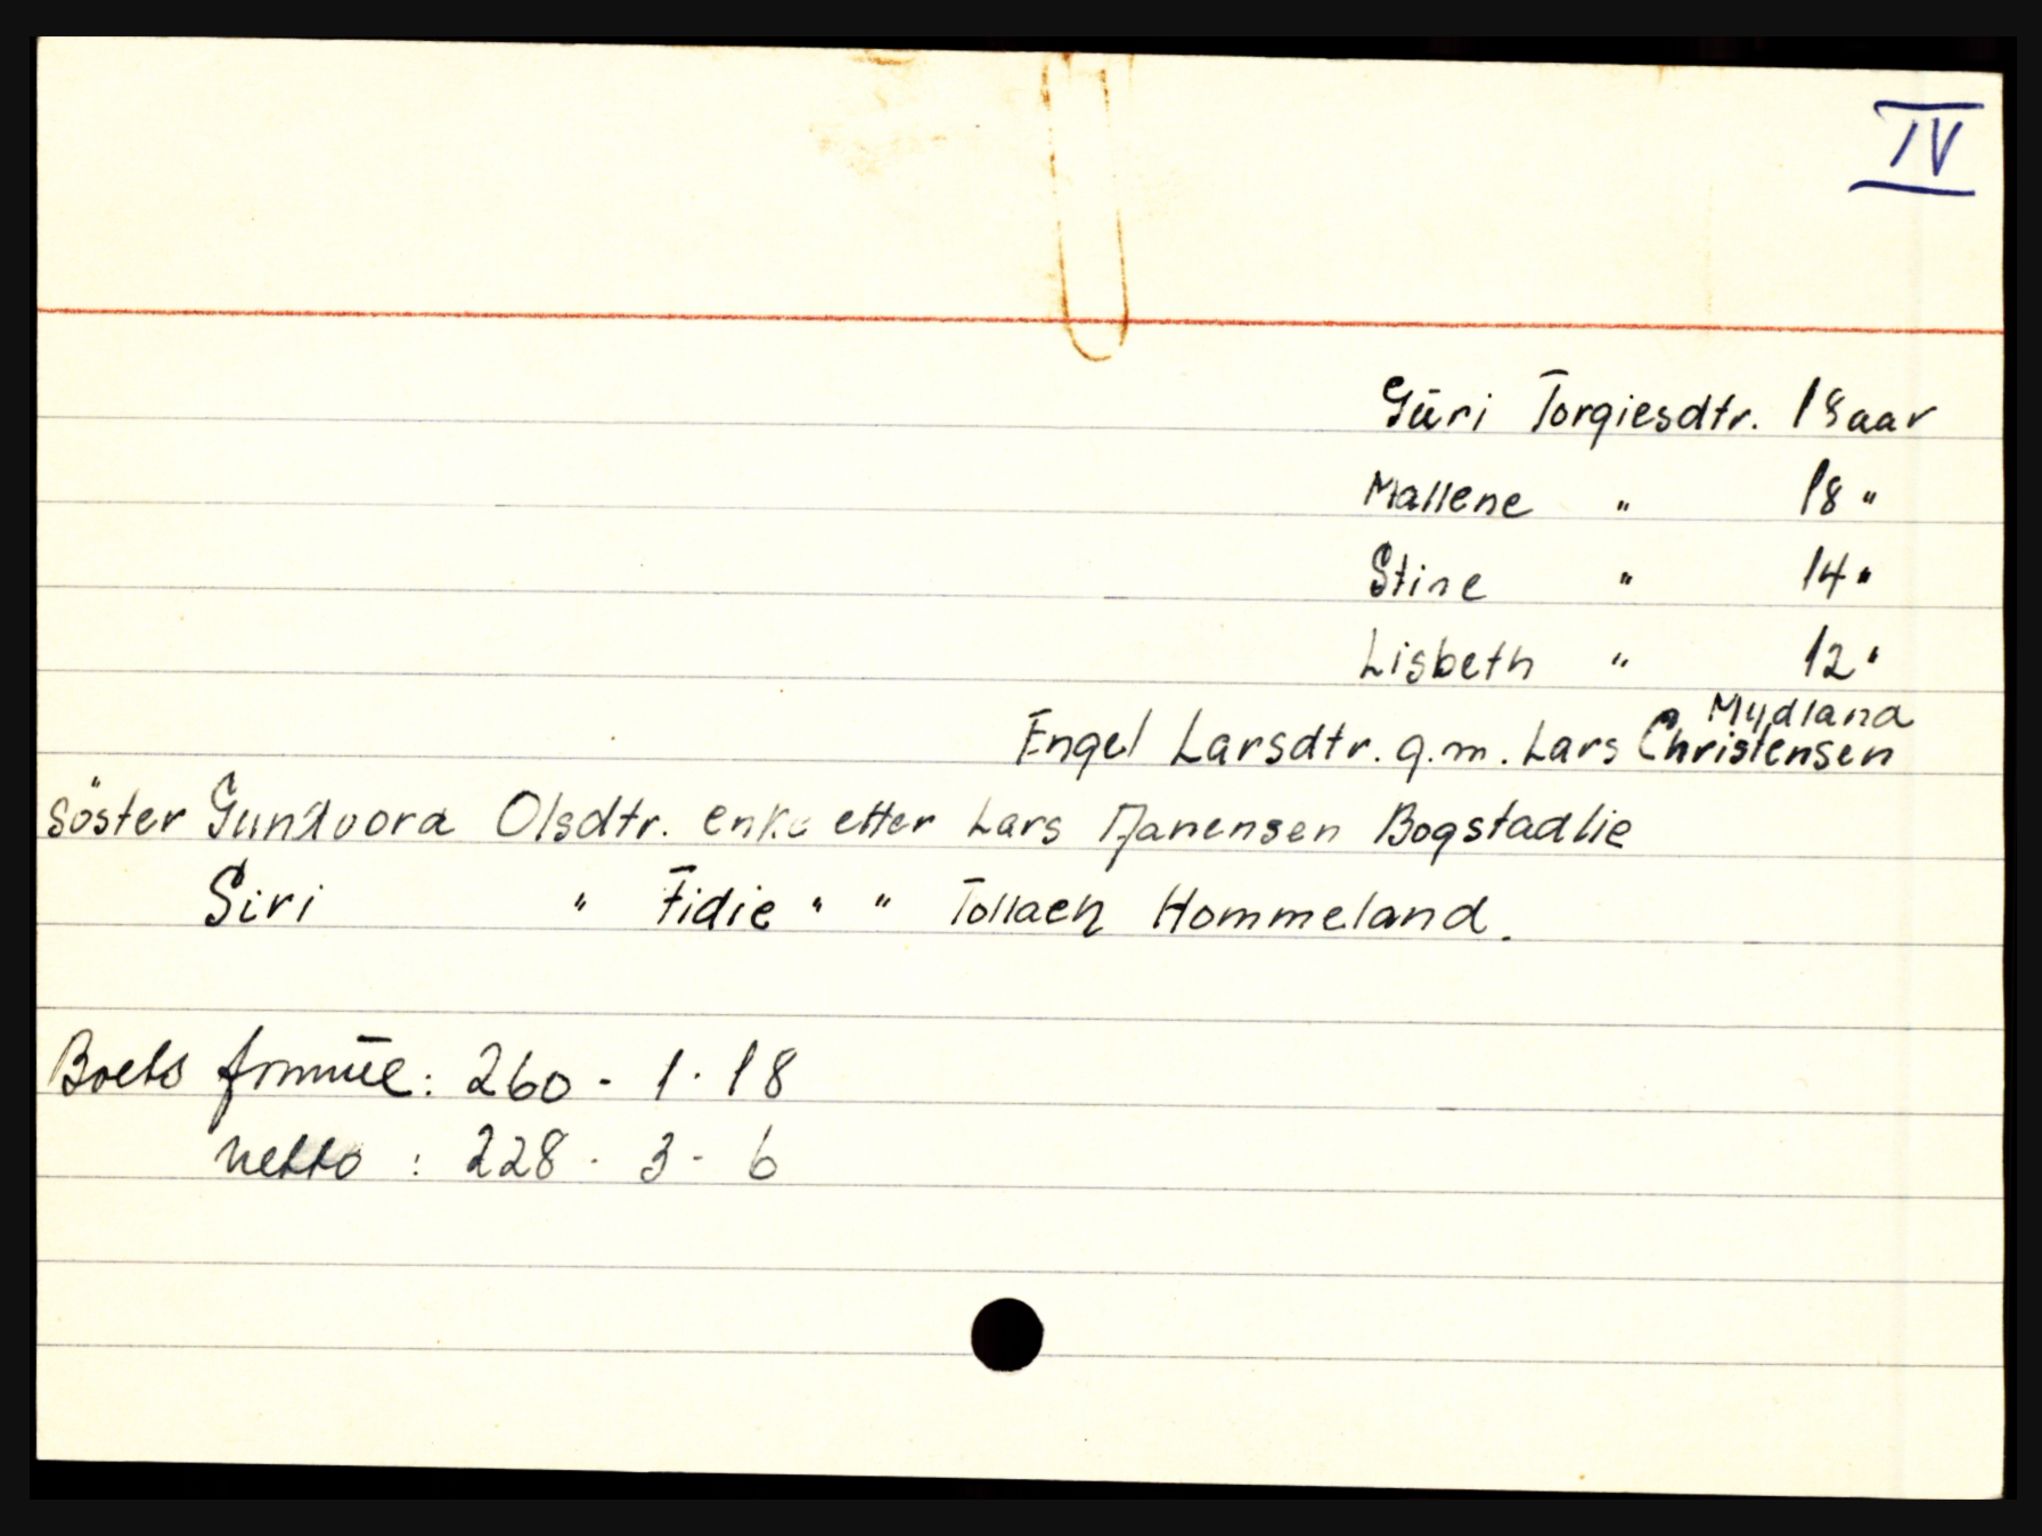 IV
Güri Torgiesdtr. 18 aar
Mallene " 18 "
Stine " 14 "
Lisbeth " 12 "
Mydland
Engel Larsdtr. g.m. Lars Christensen
söster Gundvora Olsdtr. enke etter Lars Bogstadlie
Siri " Fidie " " Tollaen Hommeland.
Boets formüe: 260 - 1 - 18
netto : 228 - 3 - 6